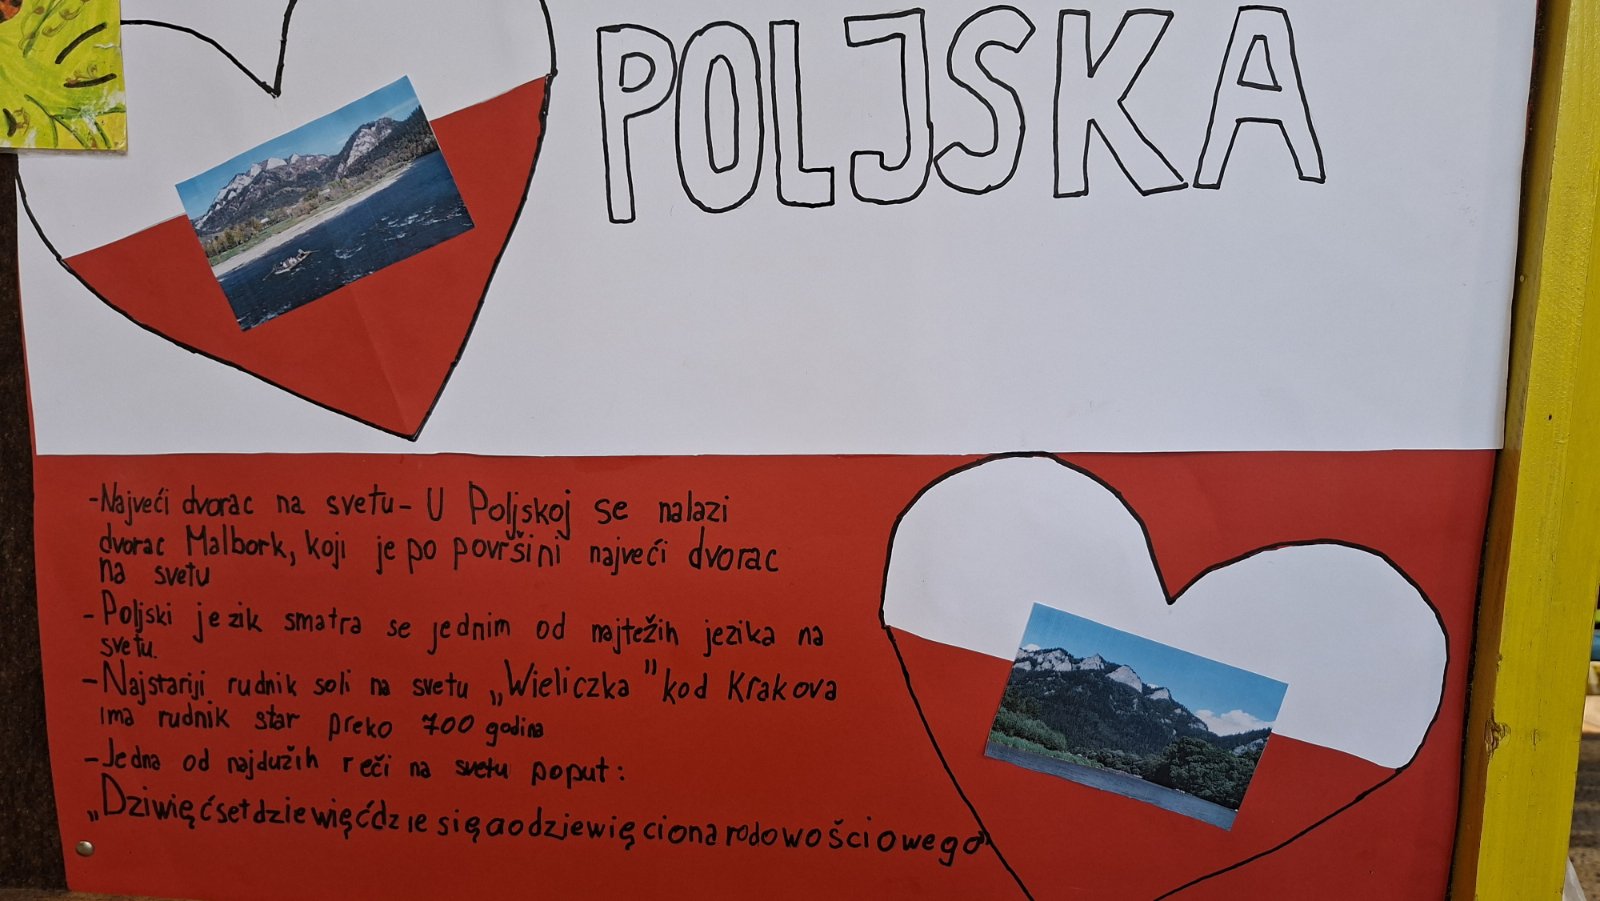 POLJSKA
-Najveći dvorac na svetu- U Poljskoj se nalazi
dvorac Malbork, koji je po površini najveći dvorac
na svetu
- Poljski jezik smatra se jednim od najtežih jezika na
svetu.
- Najstariji rudnik soli na svetu „Wieliczka" kod Krakova
ima rudnik star preko 700 godina
- Jedna od najdužih reči na svetu poput:
„Dziwięćsetdziewięćdziesięaodziewięcionarodowościowego"